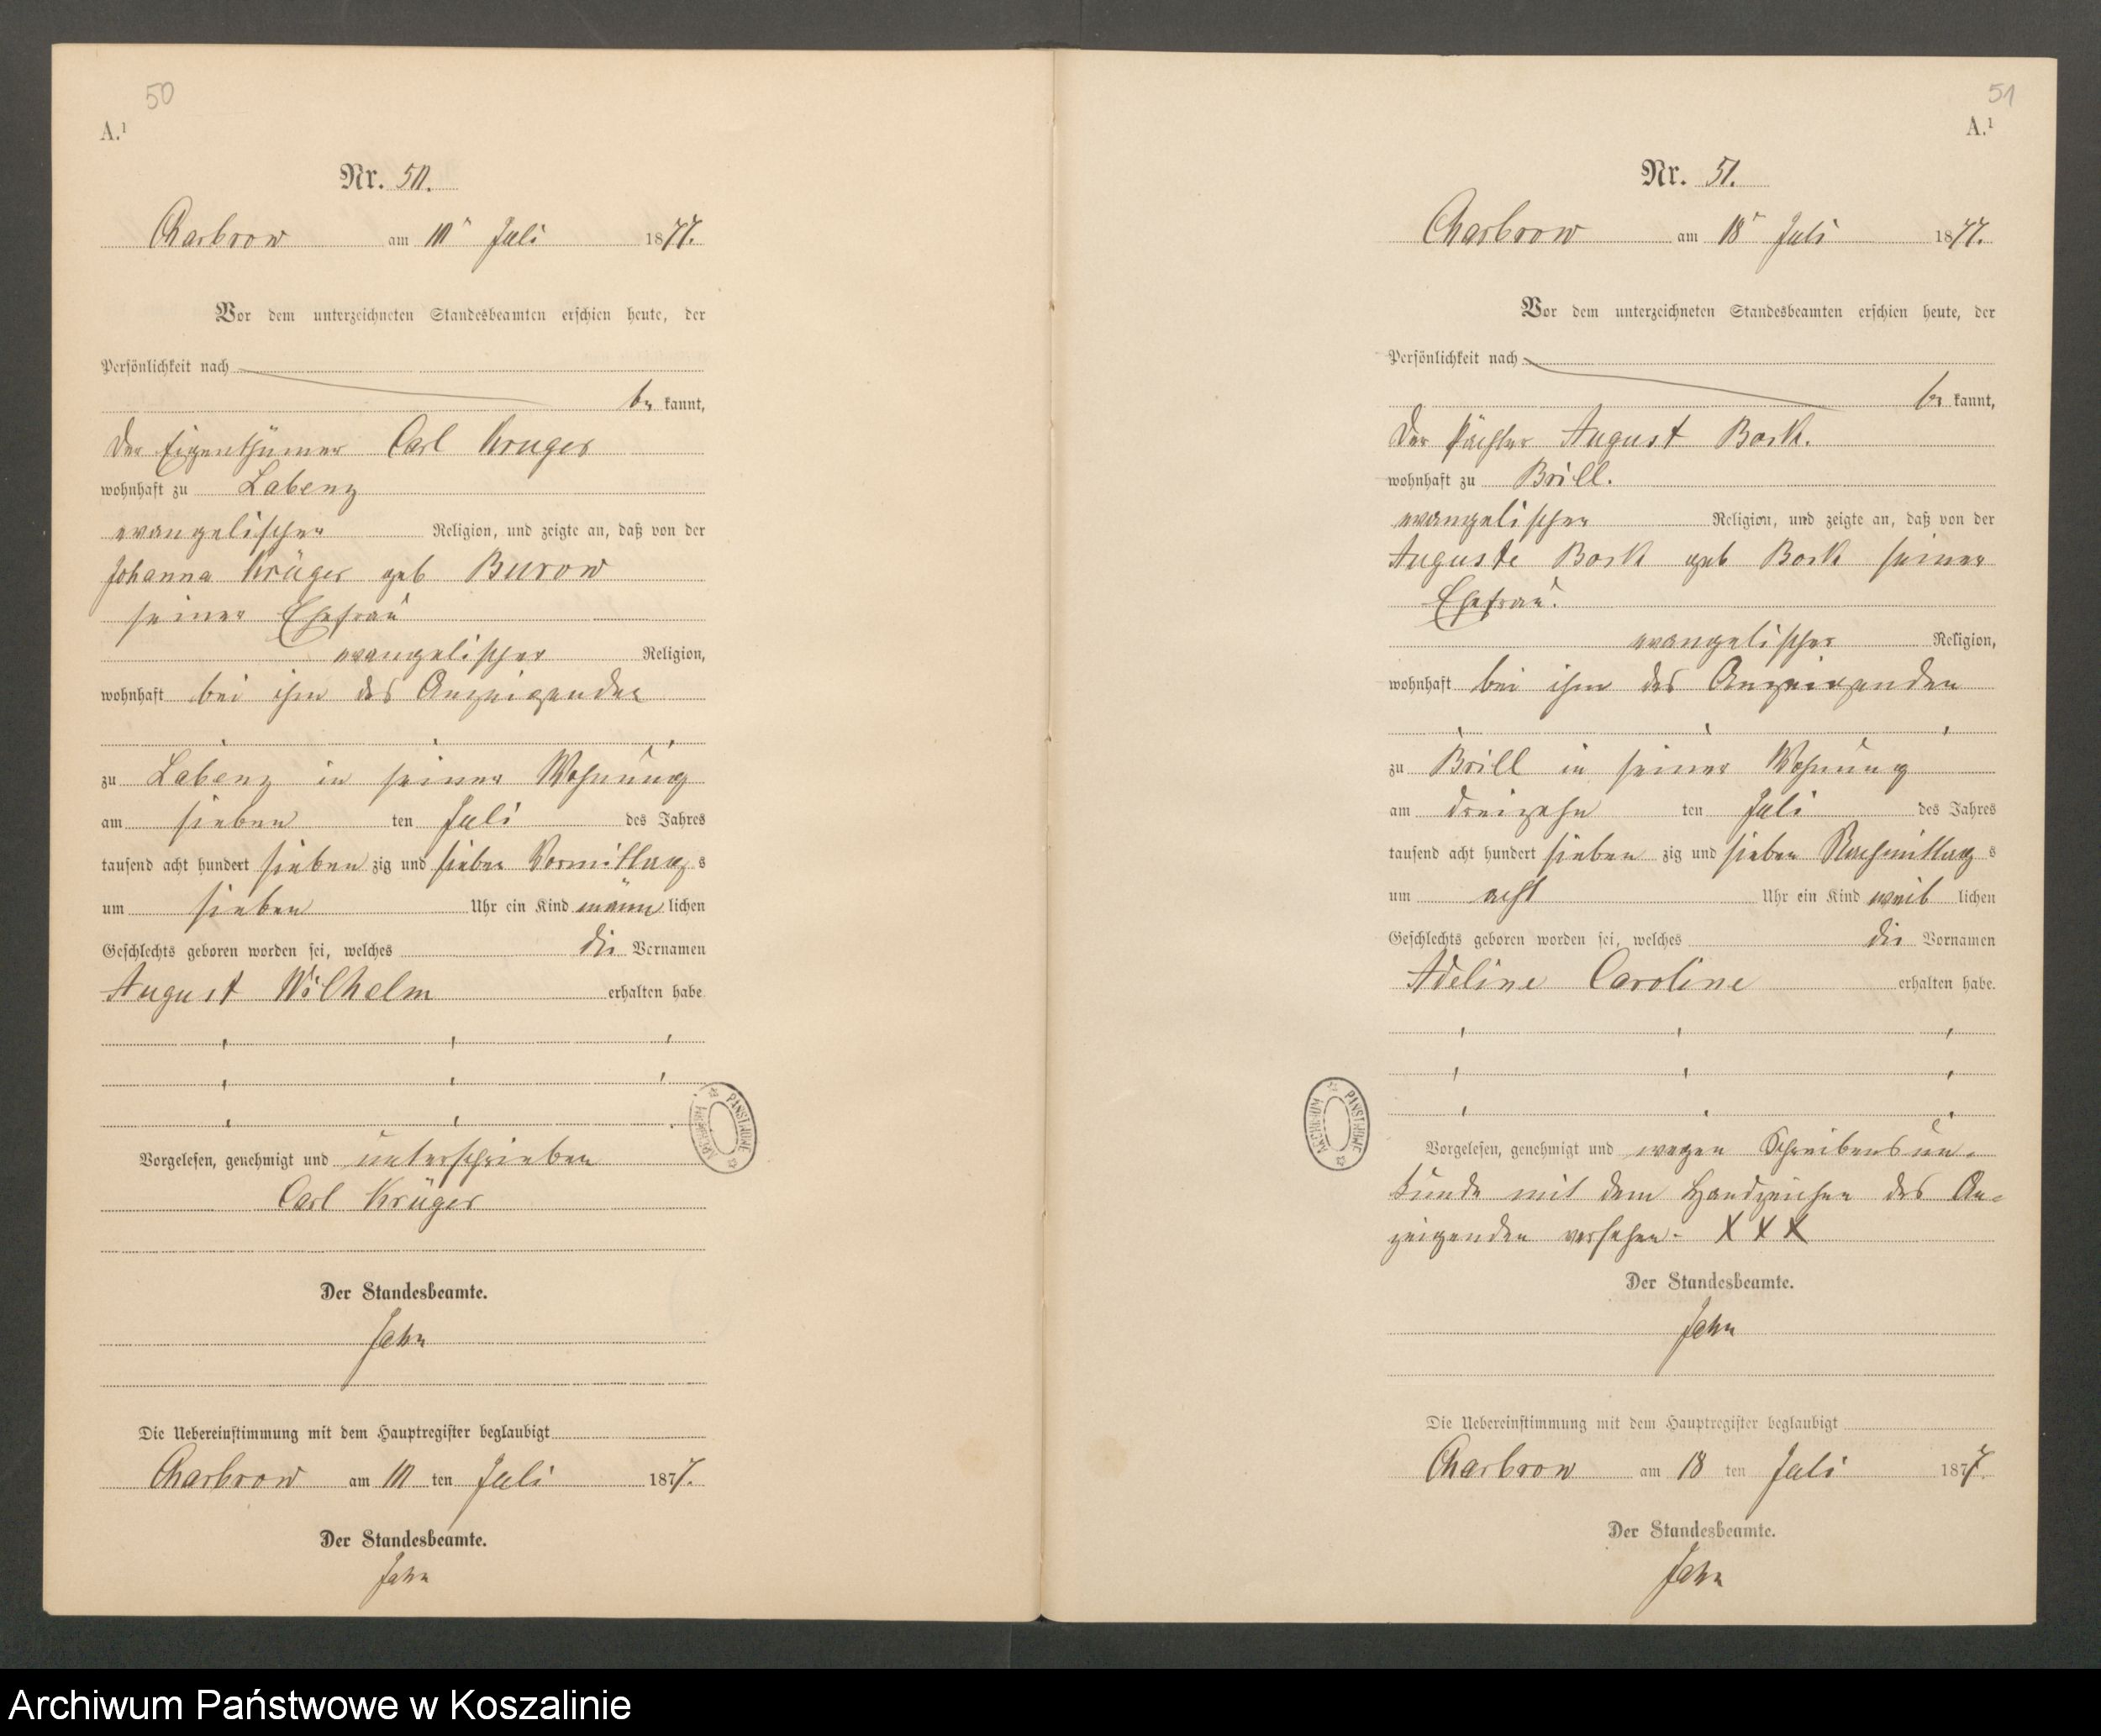 50
A.¹
Nr. 50.
Charbrow am 10ᵗ Juli 1877.
Vor dem unterzeichneten Standesbeamten erschien heute, der
Persönlichkeit nach
be kannt,
der Eigenthümer Carl Kruger
wohnhaft zu Labenz
evangelischer Religion, und zeigte an, daß von der
Johanna Krüger geb Burow
seiner Ehefrau
evangelischer Religion,
wohnhaft bei ihm des Anzeigenden
zu Labenz in seiner Wohnung
am sieben ten Juli des Jahres
tausend acht hundert sieben zig und sieben Vormittag s
um sieben Uhr ein Kind männ lichen
Geschlechts geboren worden sei, welches die Vornamen
August Wilhelm erhalten habe
Vorgelesen, genehmigt und unterschrieben
Carl Krüger
Der Standesbeamte.
Jahn
Die Uebereinstimmung mit dem Hauptregister beglaubigt
Charbrow am 10 ten Juli 1877.
Der Standesbeamte.
Jahn
ARCHIWUM PAŃSTWOWE
51
A.¹
Nr. 51.
Charbrow am 18ᵗ Juli 1877.
Vor dem unterzeichneten Standesbeamten erschien heute, der
Persönlichkeit nach
be kannt,
Der Pächter August Bork.
wohnhaft zu Brill.
evangelischer Religion, und zeigte an, daß von der
Auguste Bork geb Bork seiner
Ehefrau.
evangelischer Religion,
wohnhaft bei ihm des Anzeigenden
zu Brill in seiner Wohnung
am dreizehn ten Juli des Jahres
tausend acht hundert sieben zig und sieben Nachmittag s
um acht Uhr ein Kind weib lichen
Geschlechts geboren worden sei, welches die Vornamen
Adeline Caroline erhalten habe.
Vorgelesen, genehmigt und wegen Schreibensun-
kunde mit dem Handzeichen des An-
zeigenden versehen. X X X
Der Standesbeamte.
Jahn
Die Uebereinstimmung mit dem Hauptregister beglaubigt
Charbrow am 18 ten Juli 1877.
Der Standesbeamte.
Jahn
ARCHIWUM PAŃSTWOWE
Archiwum Państwowe w Koszalinie